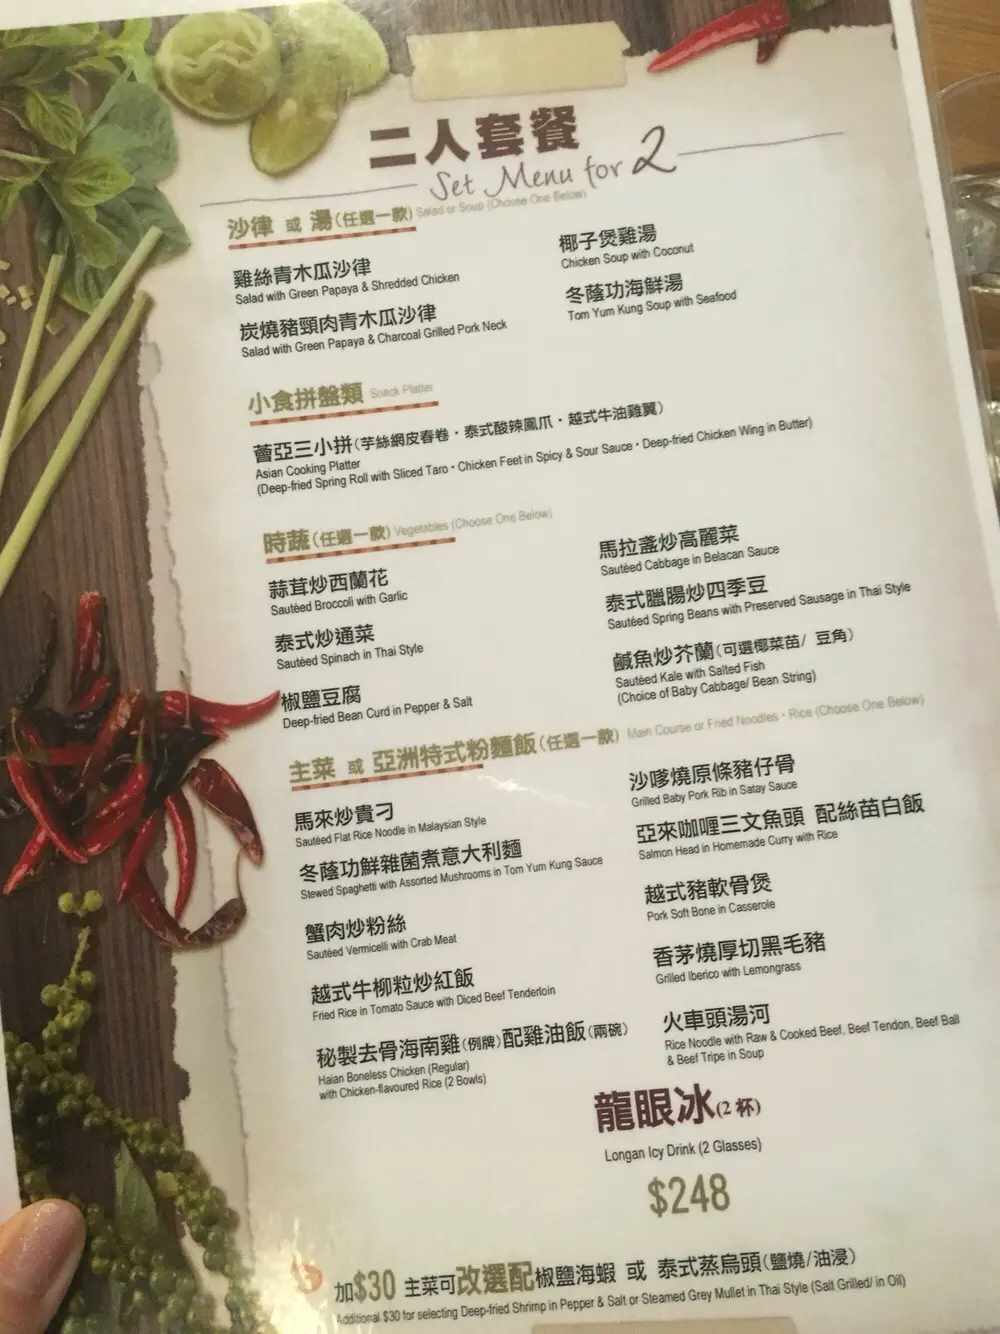 二人套餐
Set Menu for 2
沙律 或 湯(任選一款) Salad or Soup (Choose One Below)
雞絲青木瓜沙律
Salad with Green Papaya & Shredded Chicken
炭燒豬頸肉青木瓜沙律
Salad with Green Papaya & Charcoal Grilled Pork Neck
椰子煲雞湯
Chicken Soup with Coconut
冬蔭功海鮮湯
Tom Yum Kung Soup with Seafood
小食拼盤類 Snack Platter
薈亞三小拼(芋絲網皮春卷・泰式酸辣鳳爪・越式牛油雞翼)
Asian Cooking Platter
(Deep-fried Spring Roll with Sliced Taro・Chicken Feet in Spicy & Sour Sauce・Deep-fried Chicken Wing in Butter)
時蔬(任選一款) Vegetables (Choose One Below)
蒜茸炒西蘭花
Sautéed Broccoli with Garlic
泰式炒通菜
Sautéed Spinach in Thai Style
椒鹽豆腐
Deep-fried Bean Curd in Pepper & Salt
馬拉盞炒高麗菜
Sautéed Cabbage in Belacan Sauce
泰式臘腸炒四季豆
Sautéed Spring Beans with Preserved Sausage in Thai Style
鹹魚炒芥蘭(可選椰菜苗/ 豆角)
Sautéed Kale with Salted Fish
(Choice of Baby Cabbage/ Bean String)
主菜 或 亞洲特式粉麵飯(任選一款) Main Course or Fried Noodles・Rice (Choose One Below)
馬來炒貴刁
Sautéed Flat Rice Noodle in Malaysian Style
冬蔭功鮮雜菌煮意大利麵
Stewed Spaghetti with Assorted Mushrooms in Tom Yum Kung Sauce
蟹肉炒粉絲
Sautéed Vermicelli with Crab Meat
越式牛柳粒炒紅飯
Fried Rice in Tomato Sauce with Diced Beef Tenderloin
秘製去骨海南雞(例牌)配雞油飯(兩碗)
Haian Boneless Chicken (Regular)
with Chicken-flavoured Rice (2 Bowls)
沙嗲燒原條豬仔骨
Grilled Baby Pork Rib in Satay Sauce
亞來咖喱三文魚頭 配絲苗白飯
Salmon Head in Homemade Curry with Rice
越式豬軟骨煲
Pork Soft Bone in Casserole
香茅燒厚切黑毛豬
Grilled Iberico with Lemongrass
火車頭湯河
Rice Noodle with Raw & Cooked Beef, Beef Tendon, Beef Ball
& Beef Tripe in Soup
龍眼冰(2 杯)
Longan Icy Drink (2 Glasses)
$248
加$30 主菜可改選配椒鹽海蝦 或 泰式蒸烏頭(鹽燒/油浸)
Additional $30 for selecting Deep-fried Shrimp in Pepper & Salt or Steamed Grey Mullet in Thai Style (Salt Grilled/ in Oil)